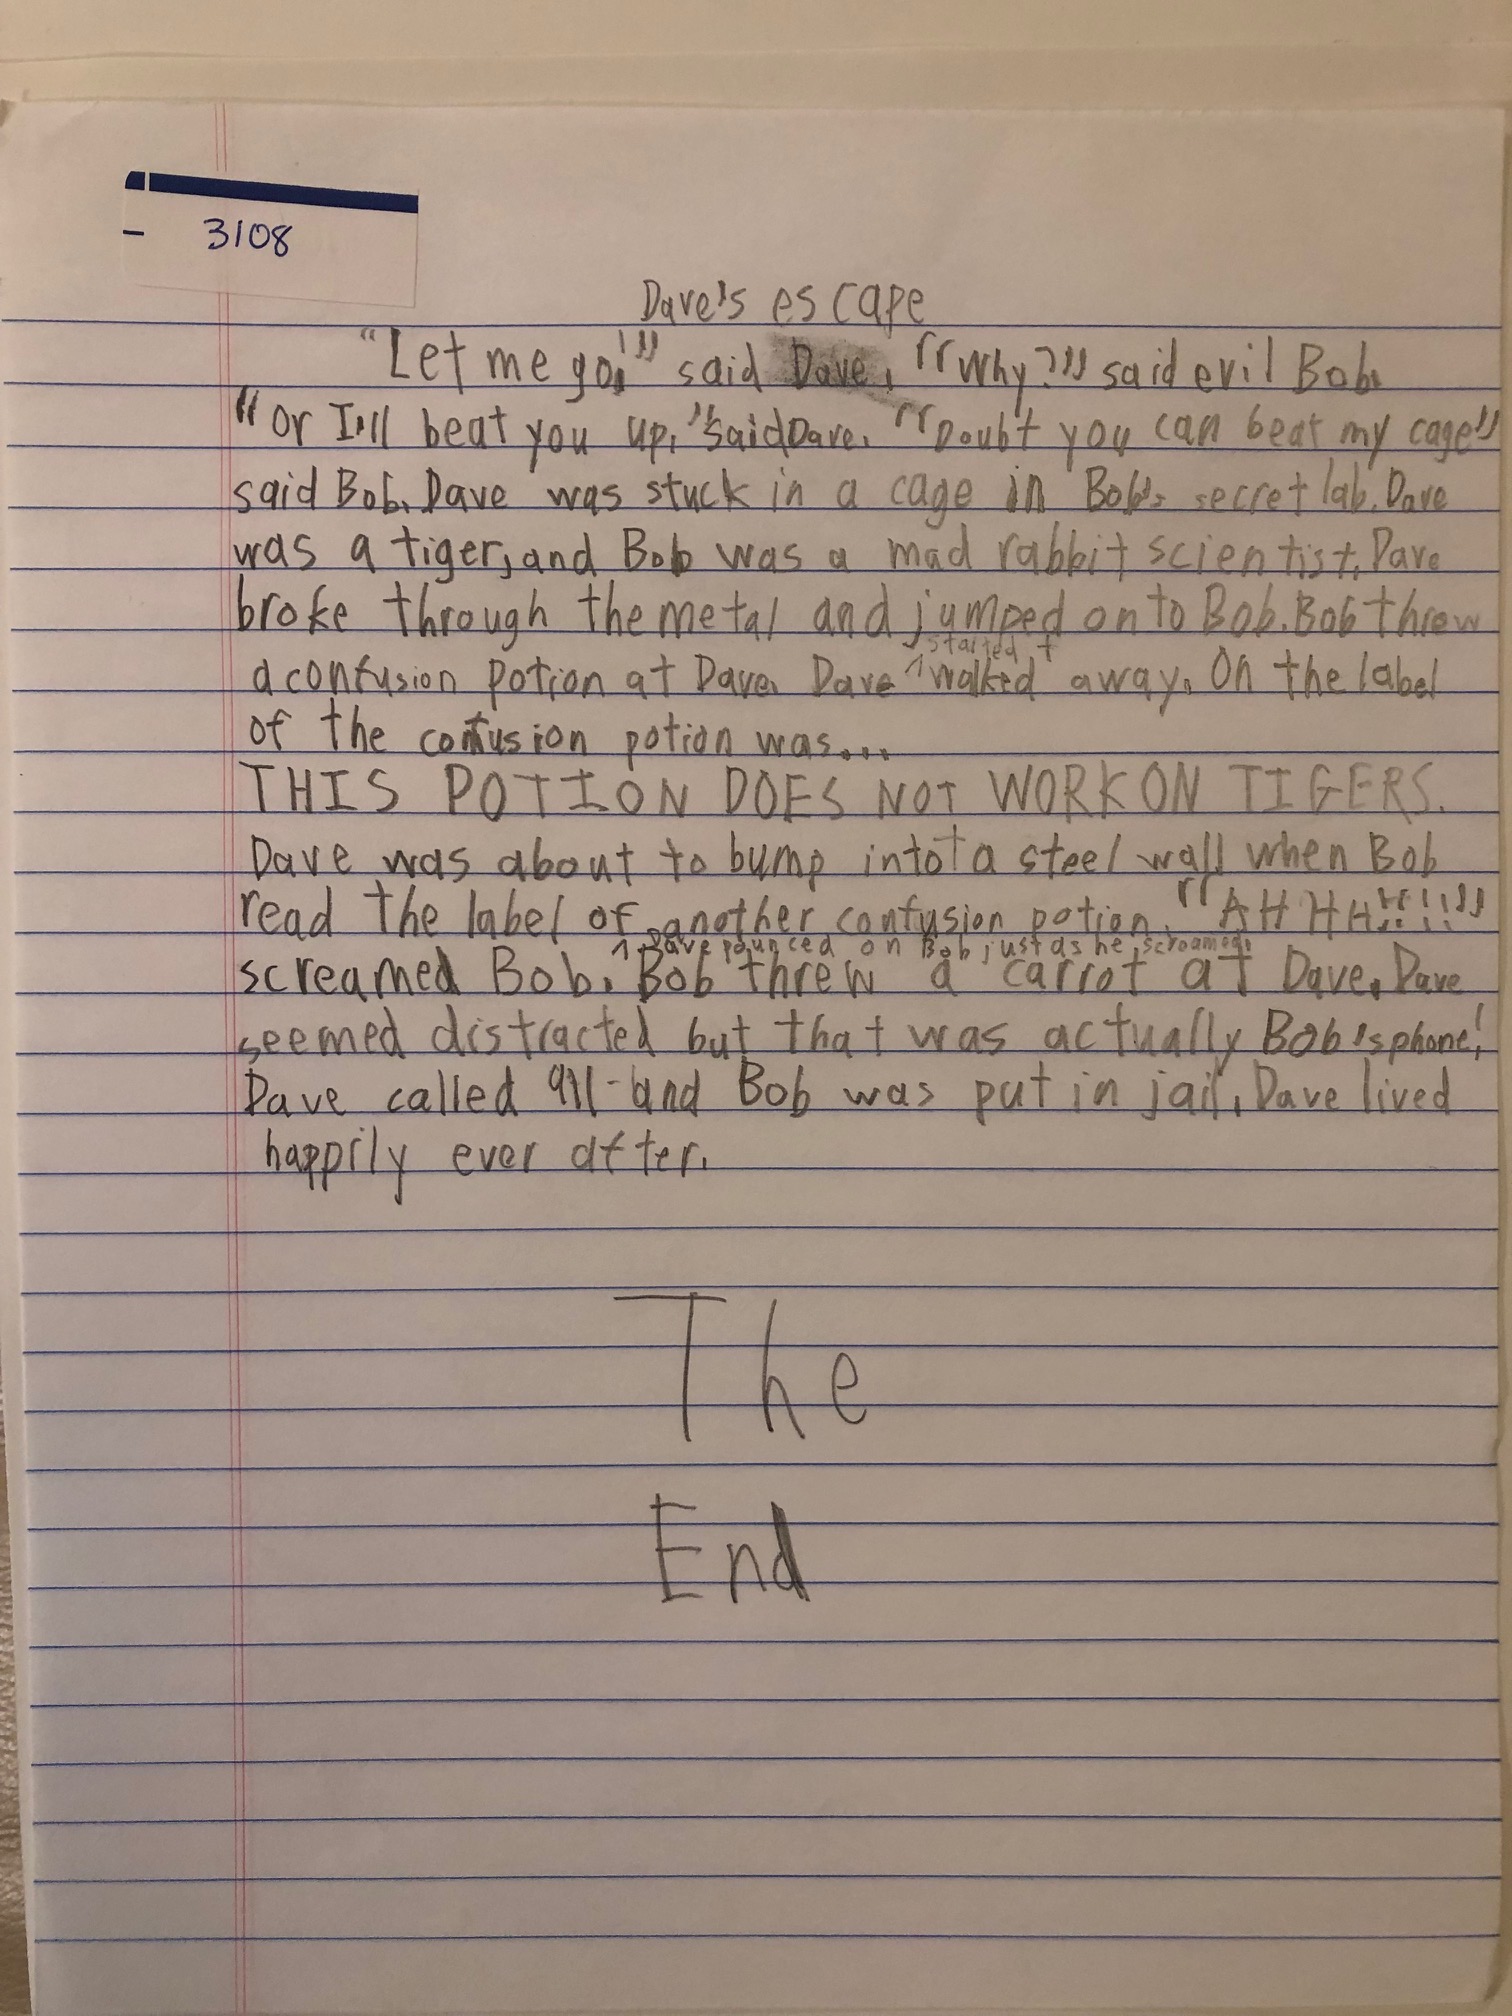 3108
Dave's escape
"Let me go!" said Dave. "Why?" said evil Bob.
"Or I'll beat you up," said Dave. "Doubt you can beat my cage"
said Bob. Dave was stuck in a cage in Bob's secret lab. Dave
was a tiger, and Bob was a mad rabbit scientist. Dave
broke through the metal and jumped on to Bob. Bob threw
started t
a confusion potion at Dave. Dave ^ walked away. On the label
of the confusion potion was...
THIS POTION DOES NOT WORK ON TIGERS.
Dave was about to bump into a steel wall when Bob
read the label of another confusion potion. "AHHHH!!!!"
Dave pounced on Bob just as he screamed.
screamed Bob. ^ Bob threw a carrot at Dave. Dave
seemed distracted but that was actually Bob's phone!
Dave called 911 and Bob was put in jail. Dave lived
happily ever after.
The
End